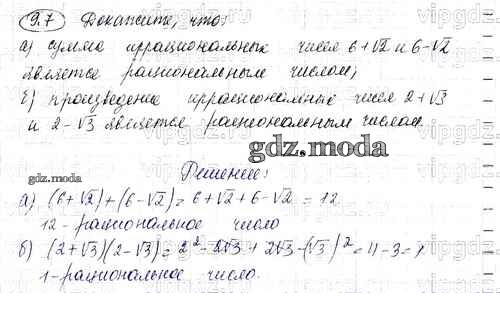 9.7 Докажите, что:
а) сумма иррациональных чисел 6+√2 и 6-√2
является рациональным числом;
б) произведение иррациональных чисел 2+√3
и 2-√3 является рациональным числом.
gdz.moda
Решение:
gdz.moda
а) (6+√2)+(6-√2)=6+√2+6-√2=12
12-рациональное число
б) (2+√3)(2-√3)=2²-2√3+2√3-(√3)²=4-3=1
1-рациональное число.